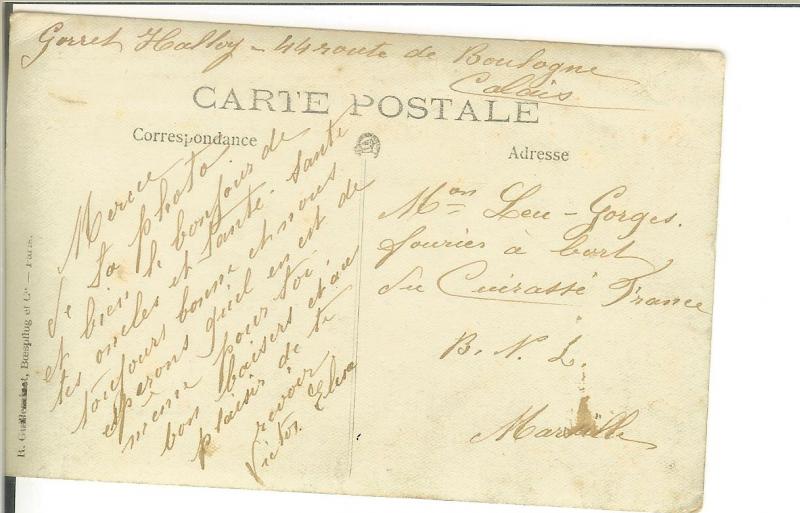 Gorret Halloy - 44 route de Boulogne
Calais
CARTE POSTALE
Correspondance
Adresse
Mercie
de ta photo
et bien le bonjour de
tes oncles et tante. Santé
toujours bonne et nous
esperons qu'el en est de
même pour toi.
bon baisers et au
plaisir de te
revoir
Victor Elise
Mon Leu - Gorges.
fourier à bort
du Cuirassé France
B. N. L.
Marseille
Bœspflug et Cie — Paris.